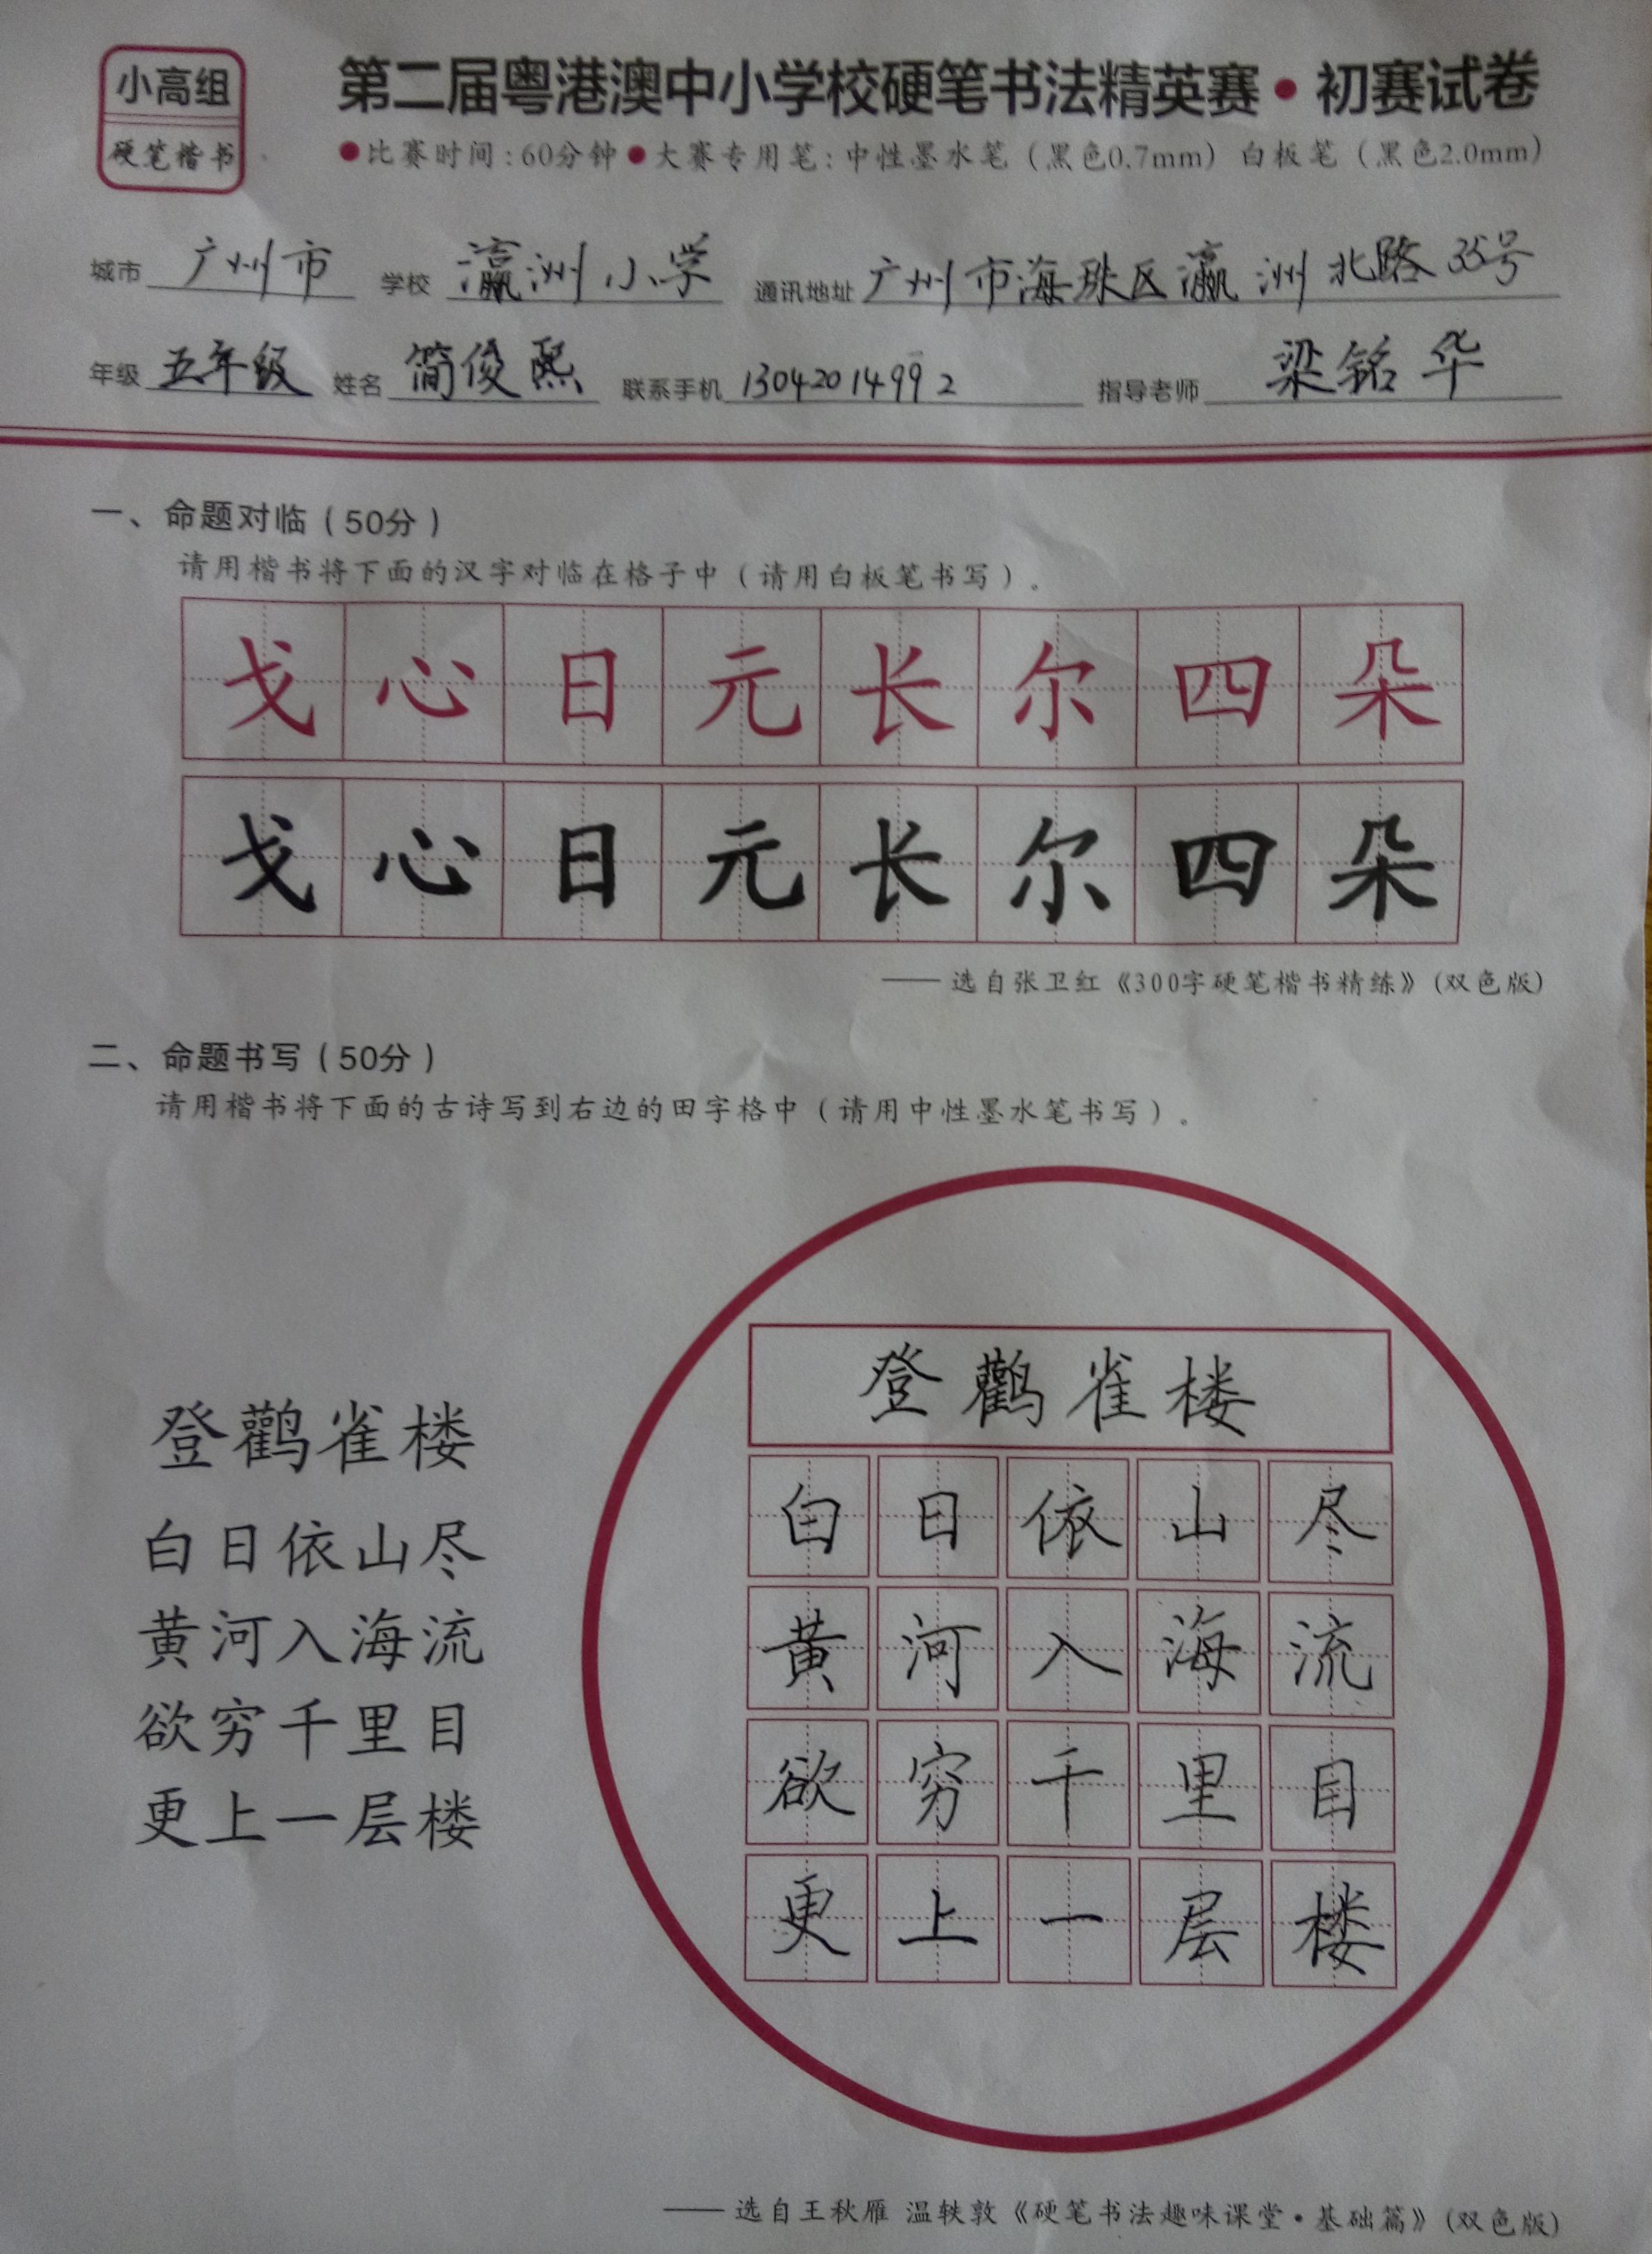 小高组
硬笔楷书
第二届粤港澳中小学校硬笔书法精英赛•初赛试卷
●比赛时间:60分钟●大赛专用笔:中性墨水笔(黑色0.7mm)白板笔(黑色2.0mm)
城市 广州市 学校 瀛洲小学 通讯地址 广州市海珠区瀛洲北路35号
年级 五年级 姓名 简俊熙 联系手机 13042014992 指导老师 梁铭华
一、命题对临(50分)
请用楷书将下面的汉字对临在格子中(请用白板笔书写)。
戈心日元长尔四朵
戈心日元长尔四朵
——选自张卫红《300字硬笔楷书精练》(双色版)
二、命题书写(50分)
请用楷书将下面的古诗写到右边的田字格中(请用中性墨水笔书写)。
登鹳雀楼
白日依山尽
黄河入海流
欲穷千里目
更上一层楼
登鹳雀楼
白日依山尽
黄河入海流
欲穷千里目
更上一层楼
——选自王秋雁 温轶敦《硬笔书法趣味课堂•基础篇》(双色版)